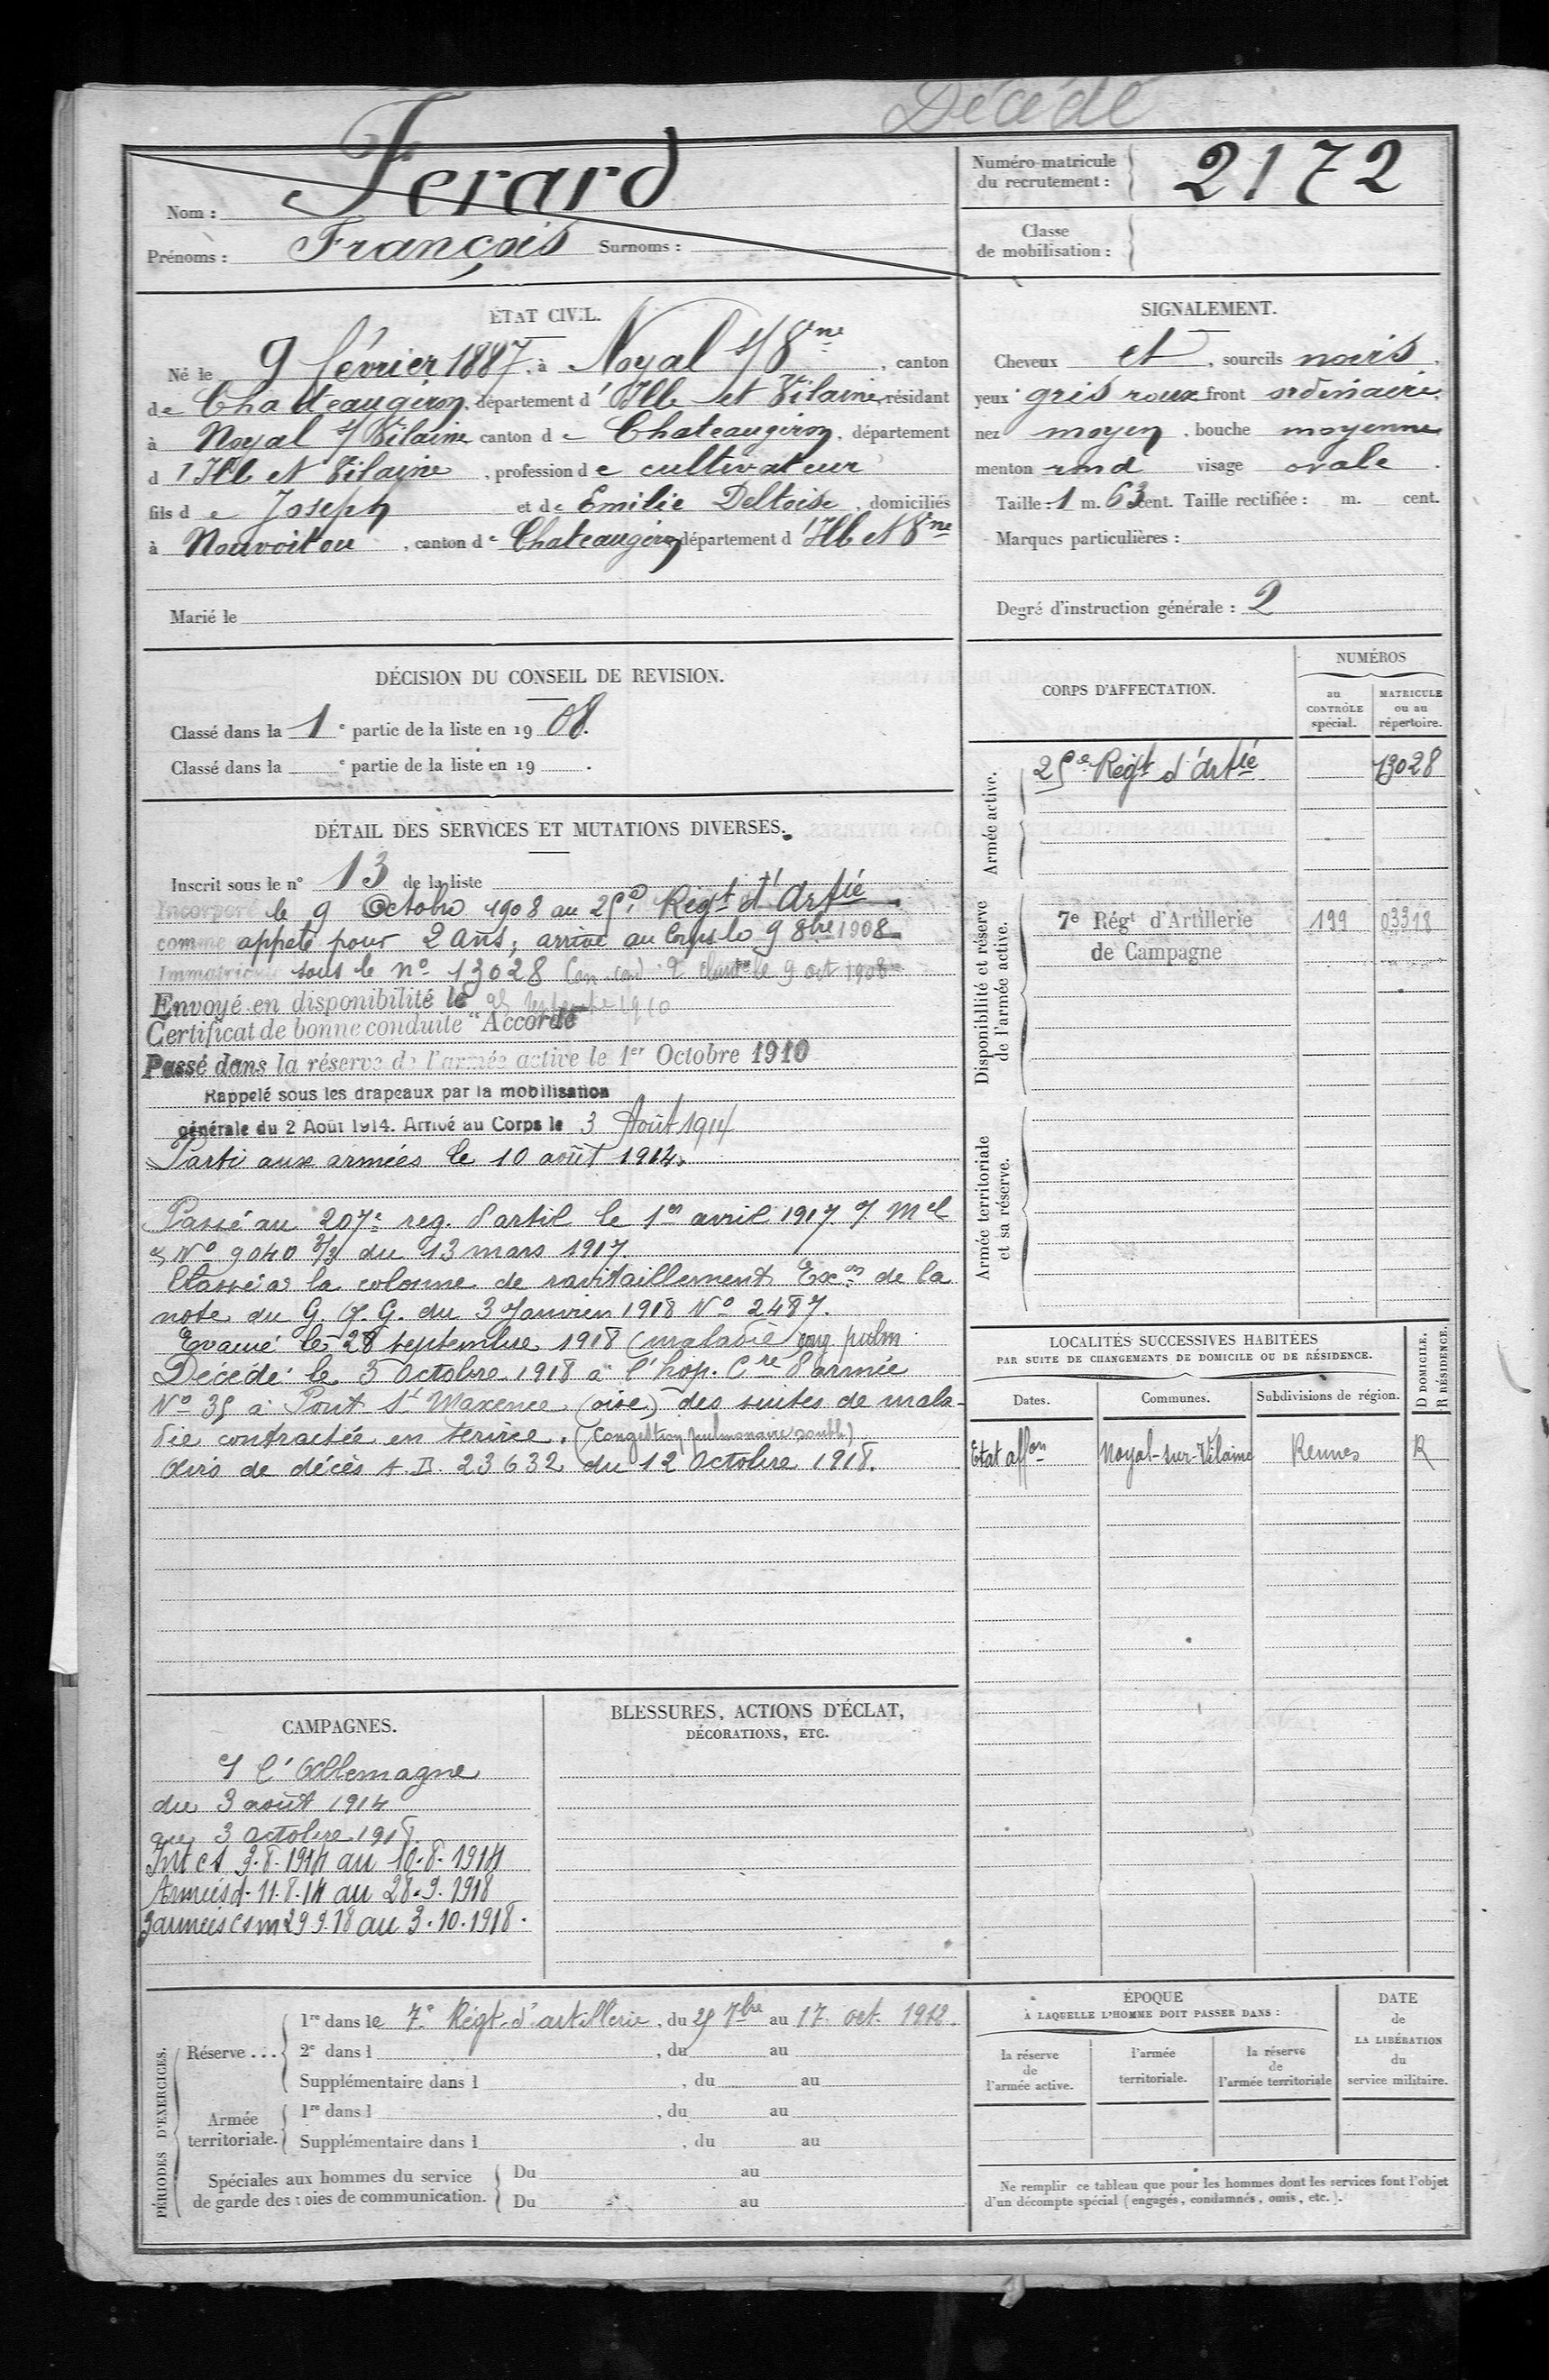 Décédé
Nom : Ferard
Prénoms : François Surnoms :
Numéro matricule
du recrutement : 2172
Classe
de mobilisation :
ÉTAT CIVIL.
Né le 9 février 1887, à Noyal s/ Vne, canton
de Chateaugiron, département d'Ille et Vilaine, résidant
à Noyal s/ Vilaine canton de Chateaugiron, département
d'Ille et Vilaine, profession de cultivateur
fils de Joseph et de Emilie Deltoise, domiciliés
à Nouvoitou, canton de Chateaugiron département d'Ille et Vne
Marié le
SIGNALEMENT.
Cheveux et, sourcils noirs,
yeux gris roux front ordinaire,
nez moyen, bouche moyenne
menton rond visage ovale.
Taille : 1 m. 63 cent. Taille rectifiée : m. cent.
Marques particulières :
Degré d'instruction générale : 2
DÉCISION DU CONSEIL DE REVISION.
Classé dans la 1e partie de la liste en 1908.
Classé dans la e partie de la liste en 19 .
DÉTAIL DES SERVICES ET MUTATIONS DIVERSES.
Inscrit sous le n° 13 de la liste
Incorporé le 9 Octobre 1908 au 25e Regt d'Artie
comme appelé pour 2 ans, arrivé au Corps le 9 8bre 1908
Immatriculé sous le n° 13028 Can. cond. 2e le 9 oct 1908
Envoyé en disponibilité le 25 septembre 1910
Certificat de bonne conduite "Accordé
Passé dans la réserve de l'armée active le 1er Octobre 1910
Rappelé sous les drapeaux par la mobilisation
générale du 2 Août 1914. Arrivé au Corps le 3 Août 1914
Parti aux armées le 10 août 1914.
Passé au 207e reg. d'artil le 1er avril 1917
N° 9040 3/3 du 13 mars 1917.
Classé à la colonne de ravitaillement Exon de la
note du G. Q. G. du 3 Janvier 1918 N° 2487.
Evacué le 28 septembre 1918 (maladie) cong pulm.
Décédé le 3 Octobre 1918 à l'hop. Cre d'armée
N° 35 à Pont St Maxence (oise) des suites de mala-
die contractée en service. (Congestion pulmonaire double)
Avis de décès A.D. 23632 du 12 Octobre 1918.
CORPS D'AFFECTATION.
NUMÉROS
au
CONTRÔLE
spécial.
MATRICULE
ou au
répertoire.
Armée active.
25e Regt d'Artie 13028
Disponibilité et réserve
de l'armée active.
7e Régt d'Artillerie 199 03318
de Campagne
Armée territoriale
et sa réserve.
LOCALITÉS SUCCESSIVES HABITÉES
PAR SUITE DE CHANGEMENTS DE DOMICILE OU DE RÉSIDENCE.
D DOMICILE.
R RÉSIDENCE.
Dates. Communes. Subdivisions de région.
Etat affon Noyal-sur-Vilaine Rennes R
CAMPAGNES.
c/ l'Allemagne
du 3 août 1914
au 3 octobre 1918.
Int cs 3.8.1914 au 10.8.1914
Armées d. 11.8.14 au 28.9.1918
armées csm 29.9.18 au 3.10.1918.
BLESSURES, ACTIONS D'ÉCLAT,
DÉCORATIONS, ETC.
PÉRIODES D'EXERCICES.
Réserve ...
1re dans le 7e Régt d'artillerie, du 25 7bre au 17 oct. 1912.
2e dans l , du au
Supplémentaire dans l , du au
Armée
territoriale.
1re dans l , du au
Supplémentaire dans l , du au
Spéciales aux hommes du service
de garde des voies de communication.
Du au
Du au
ÉPOQUE
À LAQUELLE L'HOMME DOIT PASSER DANS :
la réserve
de
l'armée active.
l'armée
territoriale.
la réserve
de
l'armée territoriale
DATE
de
LA LIBÉRATION
du
service militaire.
Ne remplir ce tableau que pour les hommes dont les services font l'objet
d'un décompte spécial (engagés, condamnés, omis, etc.).